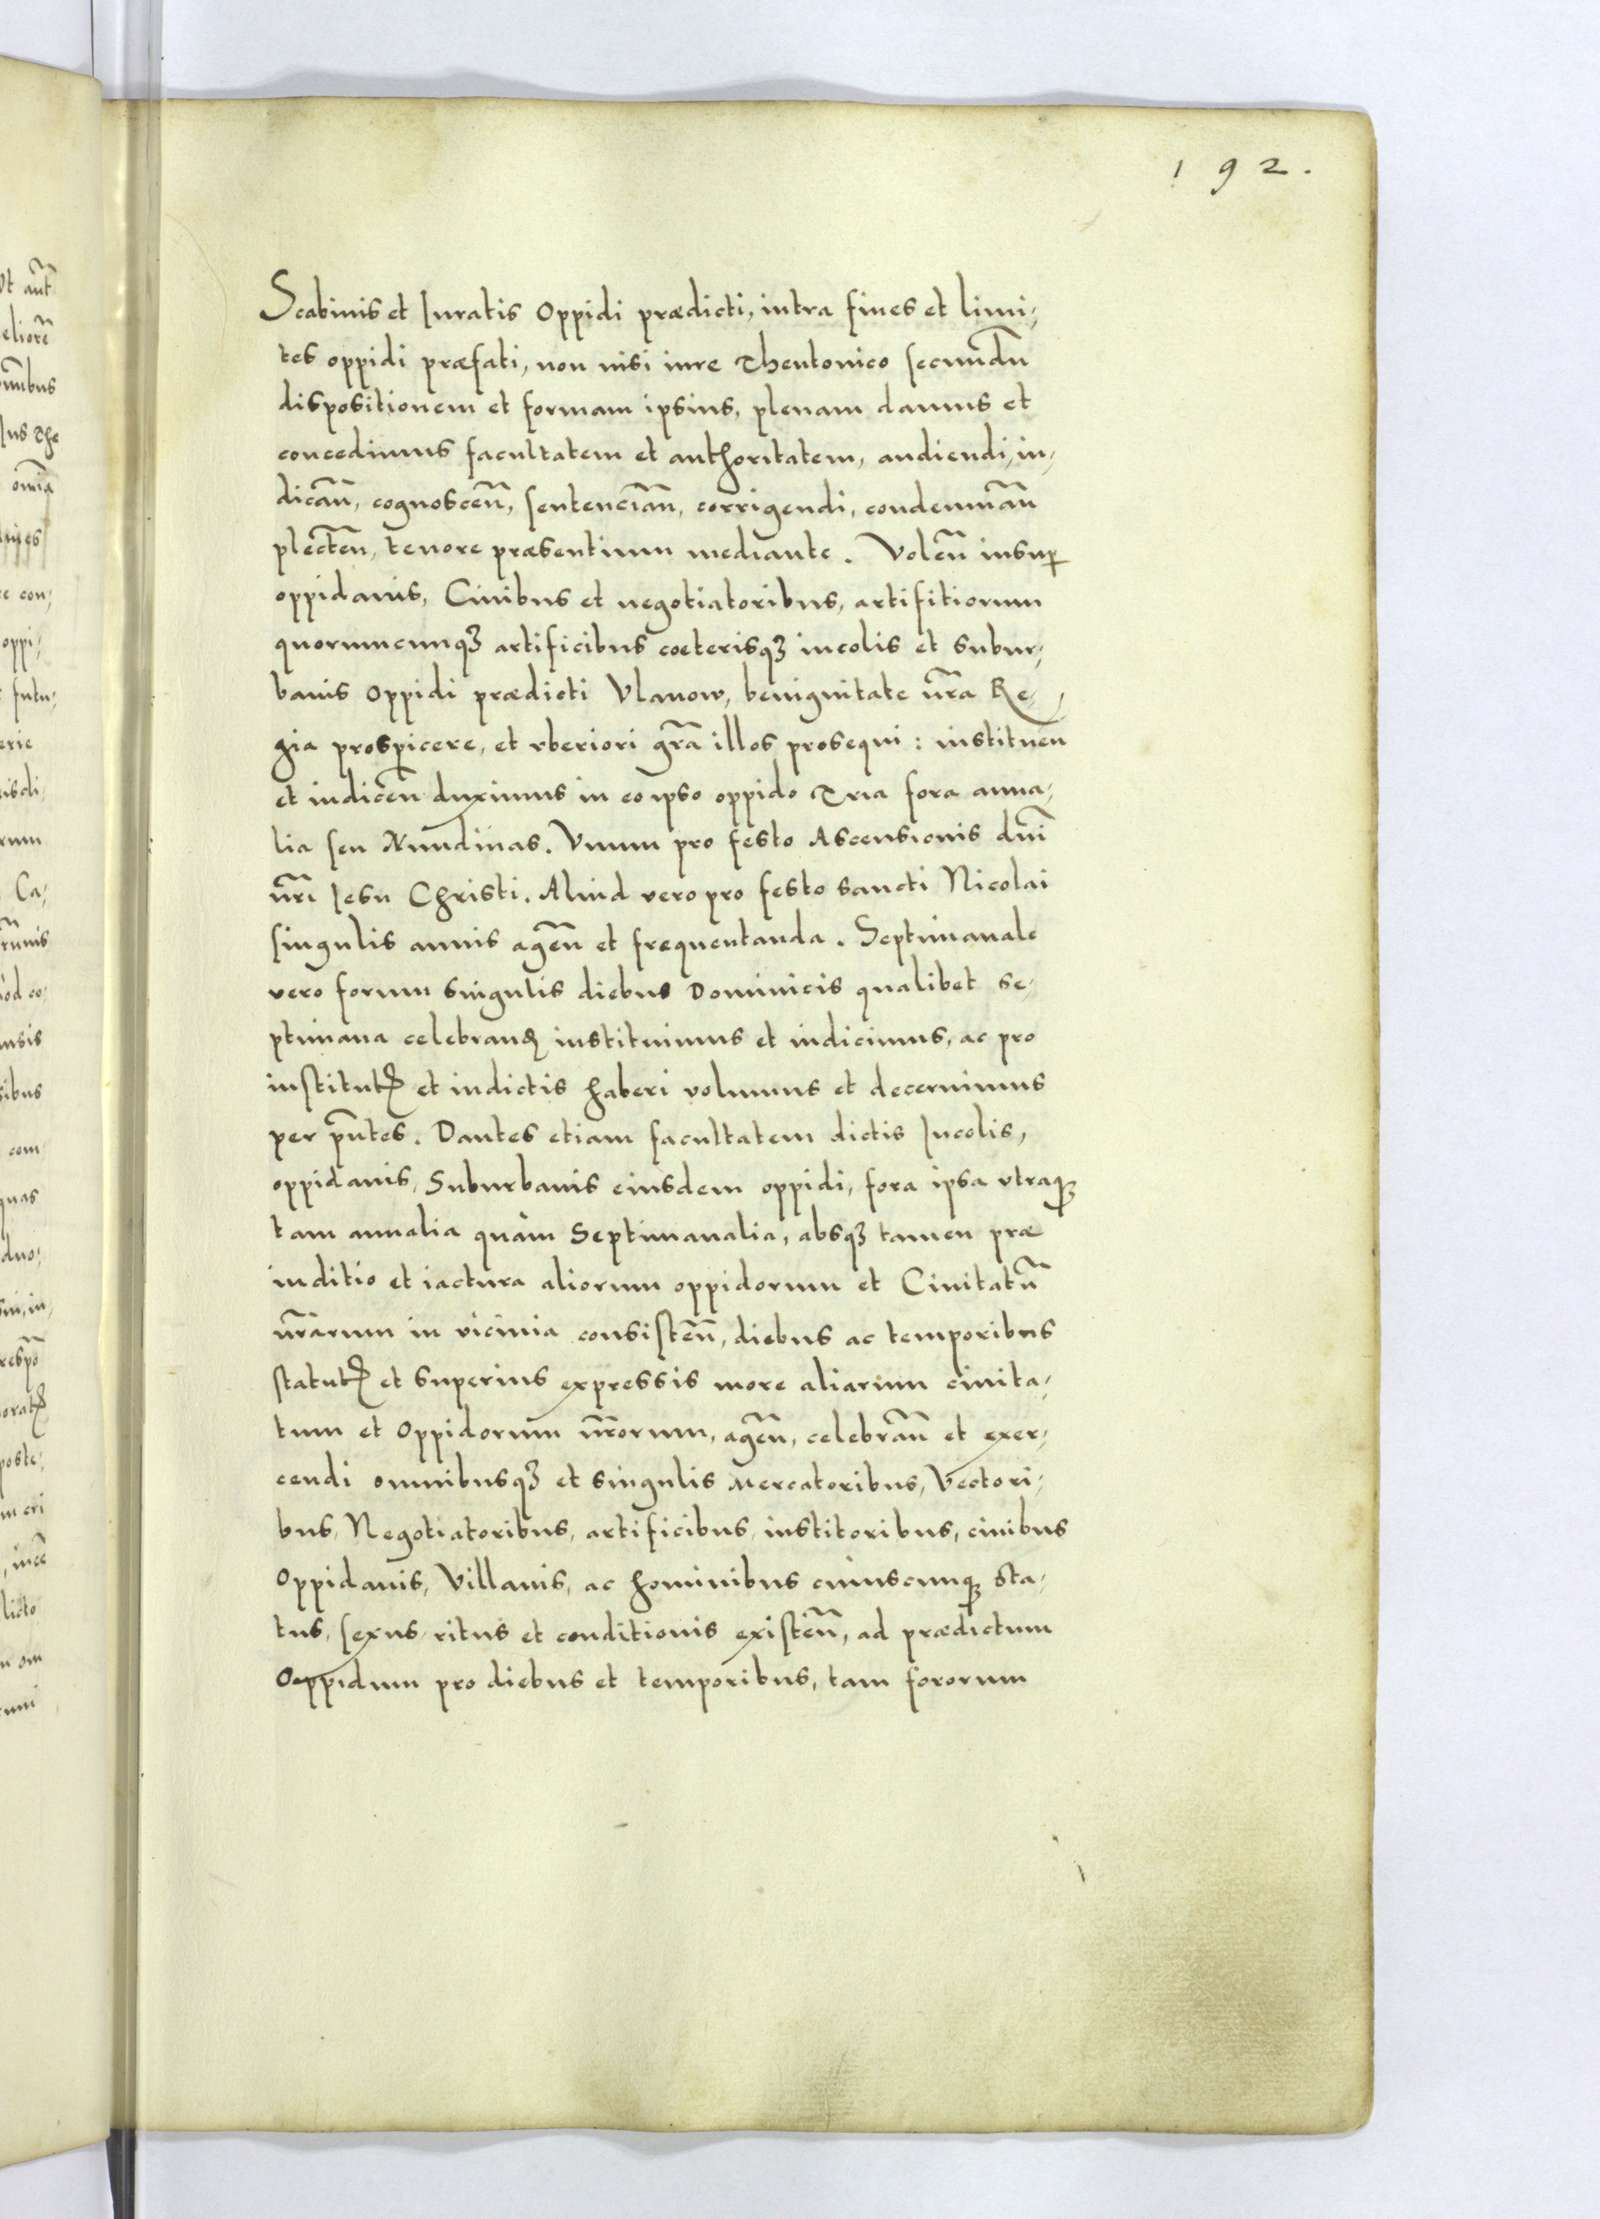 192.
Scabinis et Iuratis Oppidi prædicti, intra fines et limi,
tes oppidi præfati, non nisi iure Theutonico secundũ
dispositionem et formam ipsius, plenam damus et
concedimus facultatem et authoritatem, audiendi, iu,
dicañ, cognosceñ, sentenciañ, corrigendi, condemnañ
plecteñ, tenore præsentium mediante. Voleñ insup
oppidanis, Ciuibus et negotiatoribus, artifitiorum
quorumcunqꝫ artificibus coeterisqꝫ incolis et subur,
banis Oppidi prædicti Vlanow, benignitate nr̃a Re,
gia prospicere, et vberiori gr̃a illos prosequi: institueñ
et indiceñ duximus in eo ipso oppido Tria fora annua,
lia seu Nundinas. Vnum pro festo Ascensionis dñi
nr̃i Iesu Christi. Aliud vero pro festo sancti Nicolai
singulis annis ageñ et frequentanda. Septimanale
vero forum singulis diebus Dominicis qualibet se,
ptimana celebranꝝ instituimus et indicimus, ac pro
institutꝭ et indictis haberi volumus et decernimus
per pñtes. Dantes etiam facultatem dictis Incolis,
oppidanis, Suburbanis eiusdem oppidi, fora ipsa vtraqꝫ
tam annalia quàm Septimanalia, absqꝫ tamen præ
iuditio et iactura aliorum oppidorum et Ciuitatũ
nr̃arum in vicinia consisteñ, diebus ac temporibus
statutꝭ et superius expressis more aliarum ciuita,
tum et Oppidorum nr̃orum, ageñ, celebrañ et exer,
cendi omnibusqꝫ et singulis Mercatoribus, Vectori,
bus, Negotiatoribus, artificibus, institoribus, ciuibus
Oppidanis, Villanis, ac hominibus cuiuscunqꝫ sta,
tus, sexus, ritus et conditionis existeñ, ad prædictum
Oppidum pro diebus et temporibus, tam fororum